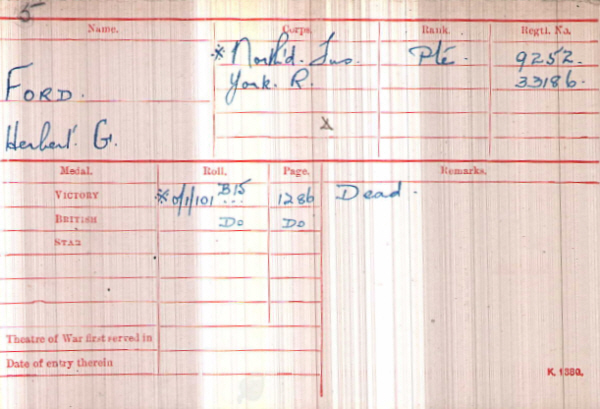 5
Name. Corps. Rank. Regtl. No.
※ North'd. Fus. Pte. 9252.
FORD. York. R. 33186.
Herbert G. X
Medal. Roll. Page. Remarks.
VICTORY ※ O/1/101 B15 1286 Dead.
BRITISH Do Do
STAR
Theatre of War first served in
Date of entry therein
K. 1380.